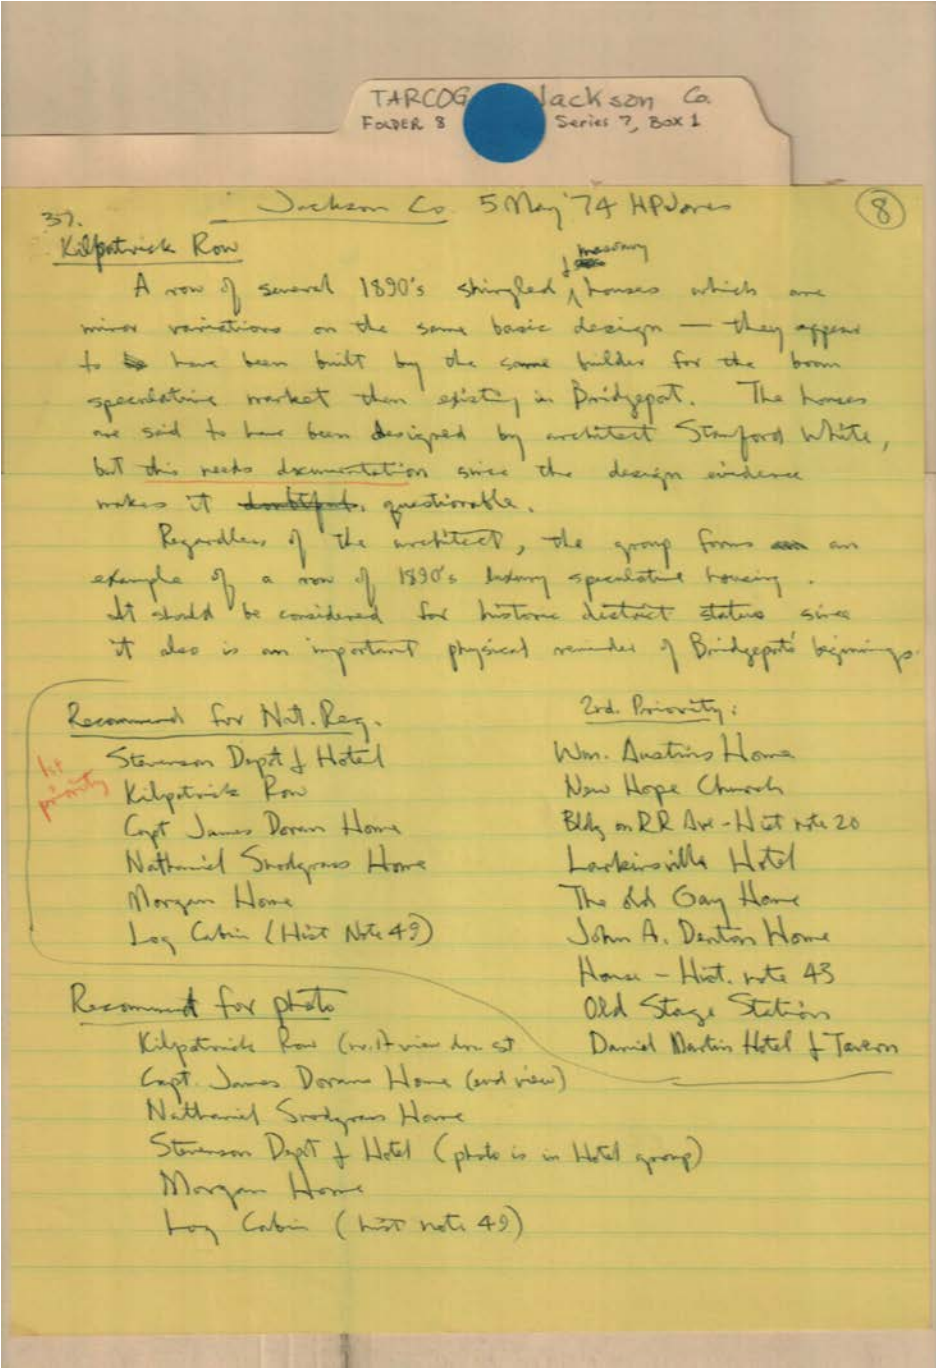 TARCOG Jackson Co.
FOLDER 8 Series 7, Box 1
Jackson Co. 5 May '74 HPJones 8
37.
Kilpatrick Row
& masonry
A row of several 1890's shingled houses which are
minor variations on the same basic design — they appear
to have been built by the same builder for the boom
speculative market then existing in Bridgeport. The houses
are said to have been designed by architect Stanford White,
but this needs documentation since the design evidence
makes it doubtful, questionable.
Regardless of the architect, the group forms an
example of a row of 1890's luxury speculative housing.
It should be considered for historic district status since
it also is an important physical reminder of Bridgeport's beginnings.
Recommend for Nat. Reg.
1st priority
Stevenson Depot & Hotel
Kilpatrick Row
Capt James Doran Home
Nathaniel Snodgrass Home
Morgan Home
Log Cabin (Hist Note 49)
2nd. Priority:
Wm. Austins Home
New Hope Church
Bldg on RR Ave - Hist note 20
Larkinsville Hotel
The old Gay Home
John A. Denton Home
House - Hist. note 43
Old Stage Station
Daniel Martin Hotel & Tavern
Recommend for photo
Kilpatrick Row view dwn st
Capt. James Dorans Home (end view)
Nathaniel Snodgrass Home
Stevenson Depot & Hotel (photo is in Hotel group)
Morgan Home
Log Cabin (hist note 49)